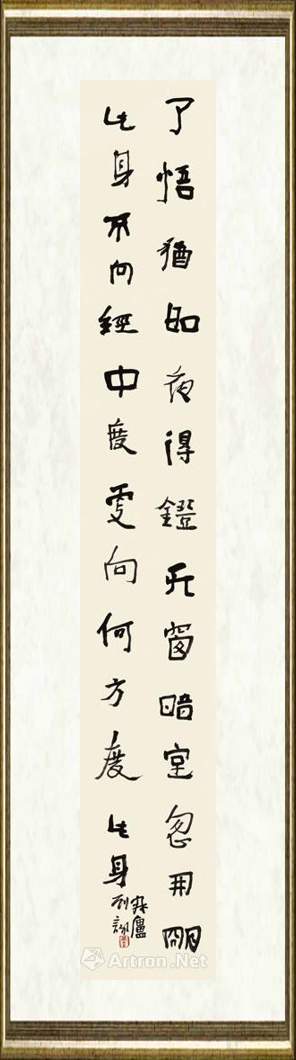 了悟猶如夜得鐙无窗暗室忽開朙
此身不向經中度更向何方度此身
Artron.Net